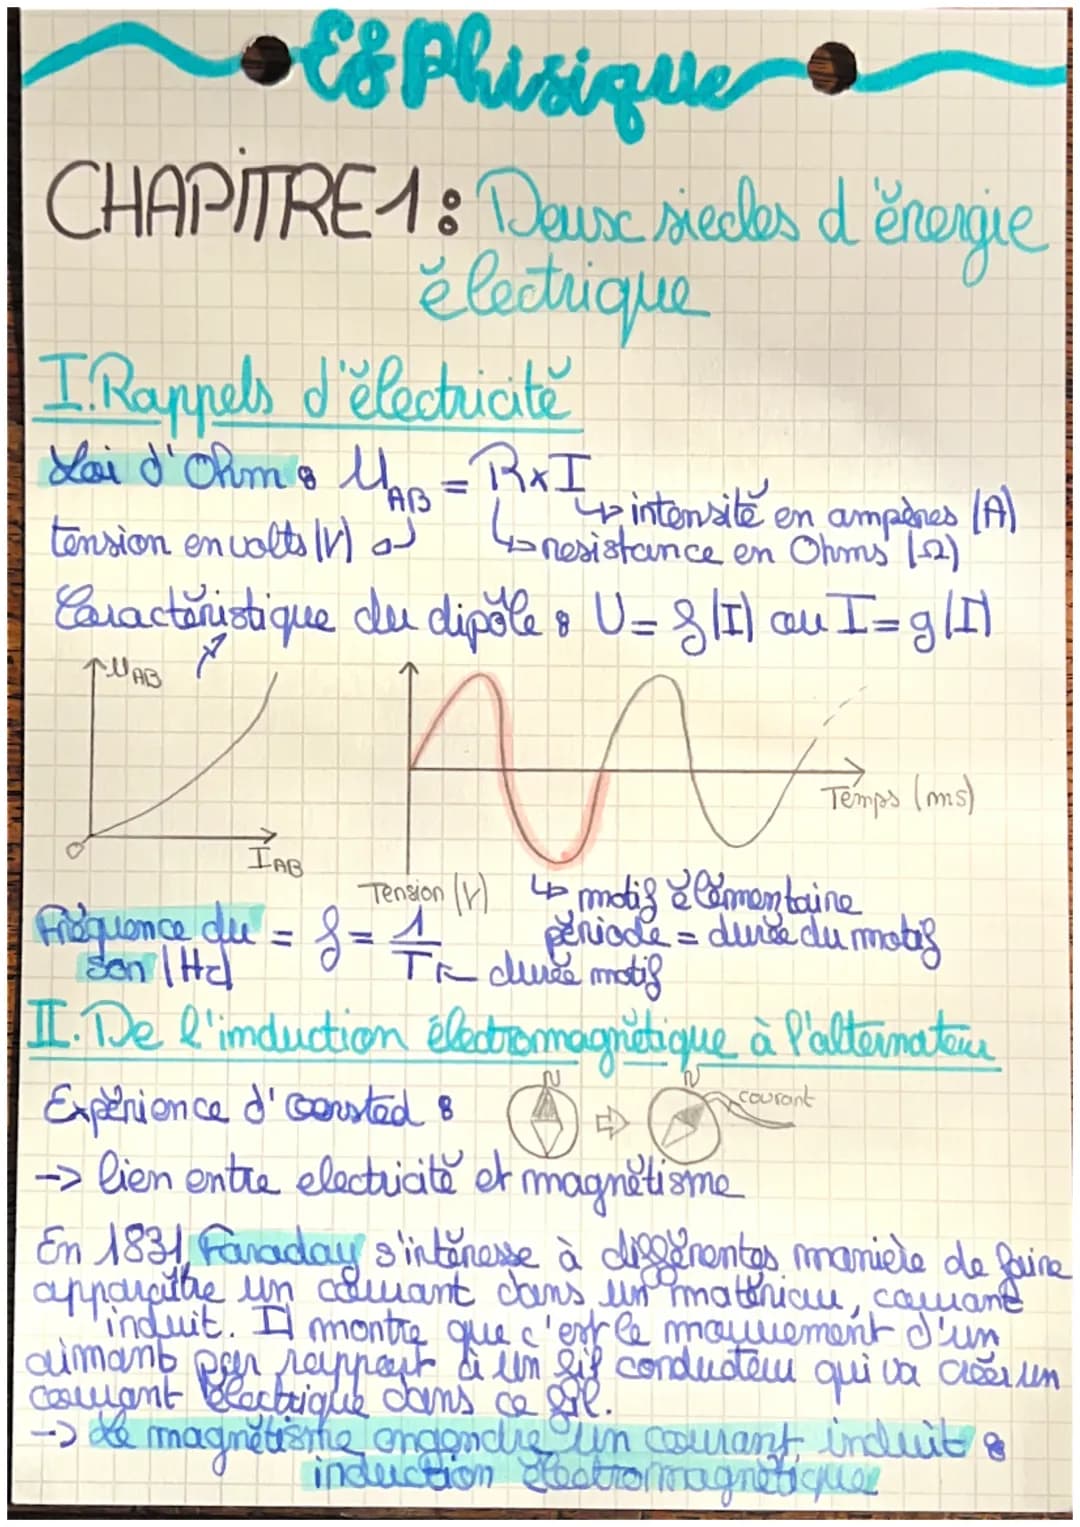 ES Phisique
CHAPITRE 1 : Deux siecles d'énergie
électrique
I. Rappels d'électricité
Loi d'Ohm : UAB = R x I
↳ intensité en ampères (A)
tension en volts (V) ↳ resistance en Ohms (Ω)
Caractéristique du dipôle : U = f(I) ou I = g(I)
UAB
O
IAB
Temps (ms)
Tension (V)
↳ motif élémentaire
période = durée du motif
Fréquence du son (Hz) = f = 1/T ← durée motif
II. De l'induction électromagnétique à l'alternateur
Expérience d'oersted :
N ⇨ N courant
-> lien entre electricité et magnétisme
En 1831, Faraday s'intéresse à différentes manière de faire
apparaître un courant dans un matériau, courant
induit. Il montre que c'est le mouvement d'un
aimant par rapport à un fil conducteur qui va créer un
courant électrique dans ce fil.
-> Le magnétisme engendre un courant induit :
induction électromagnétique